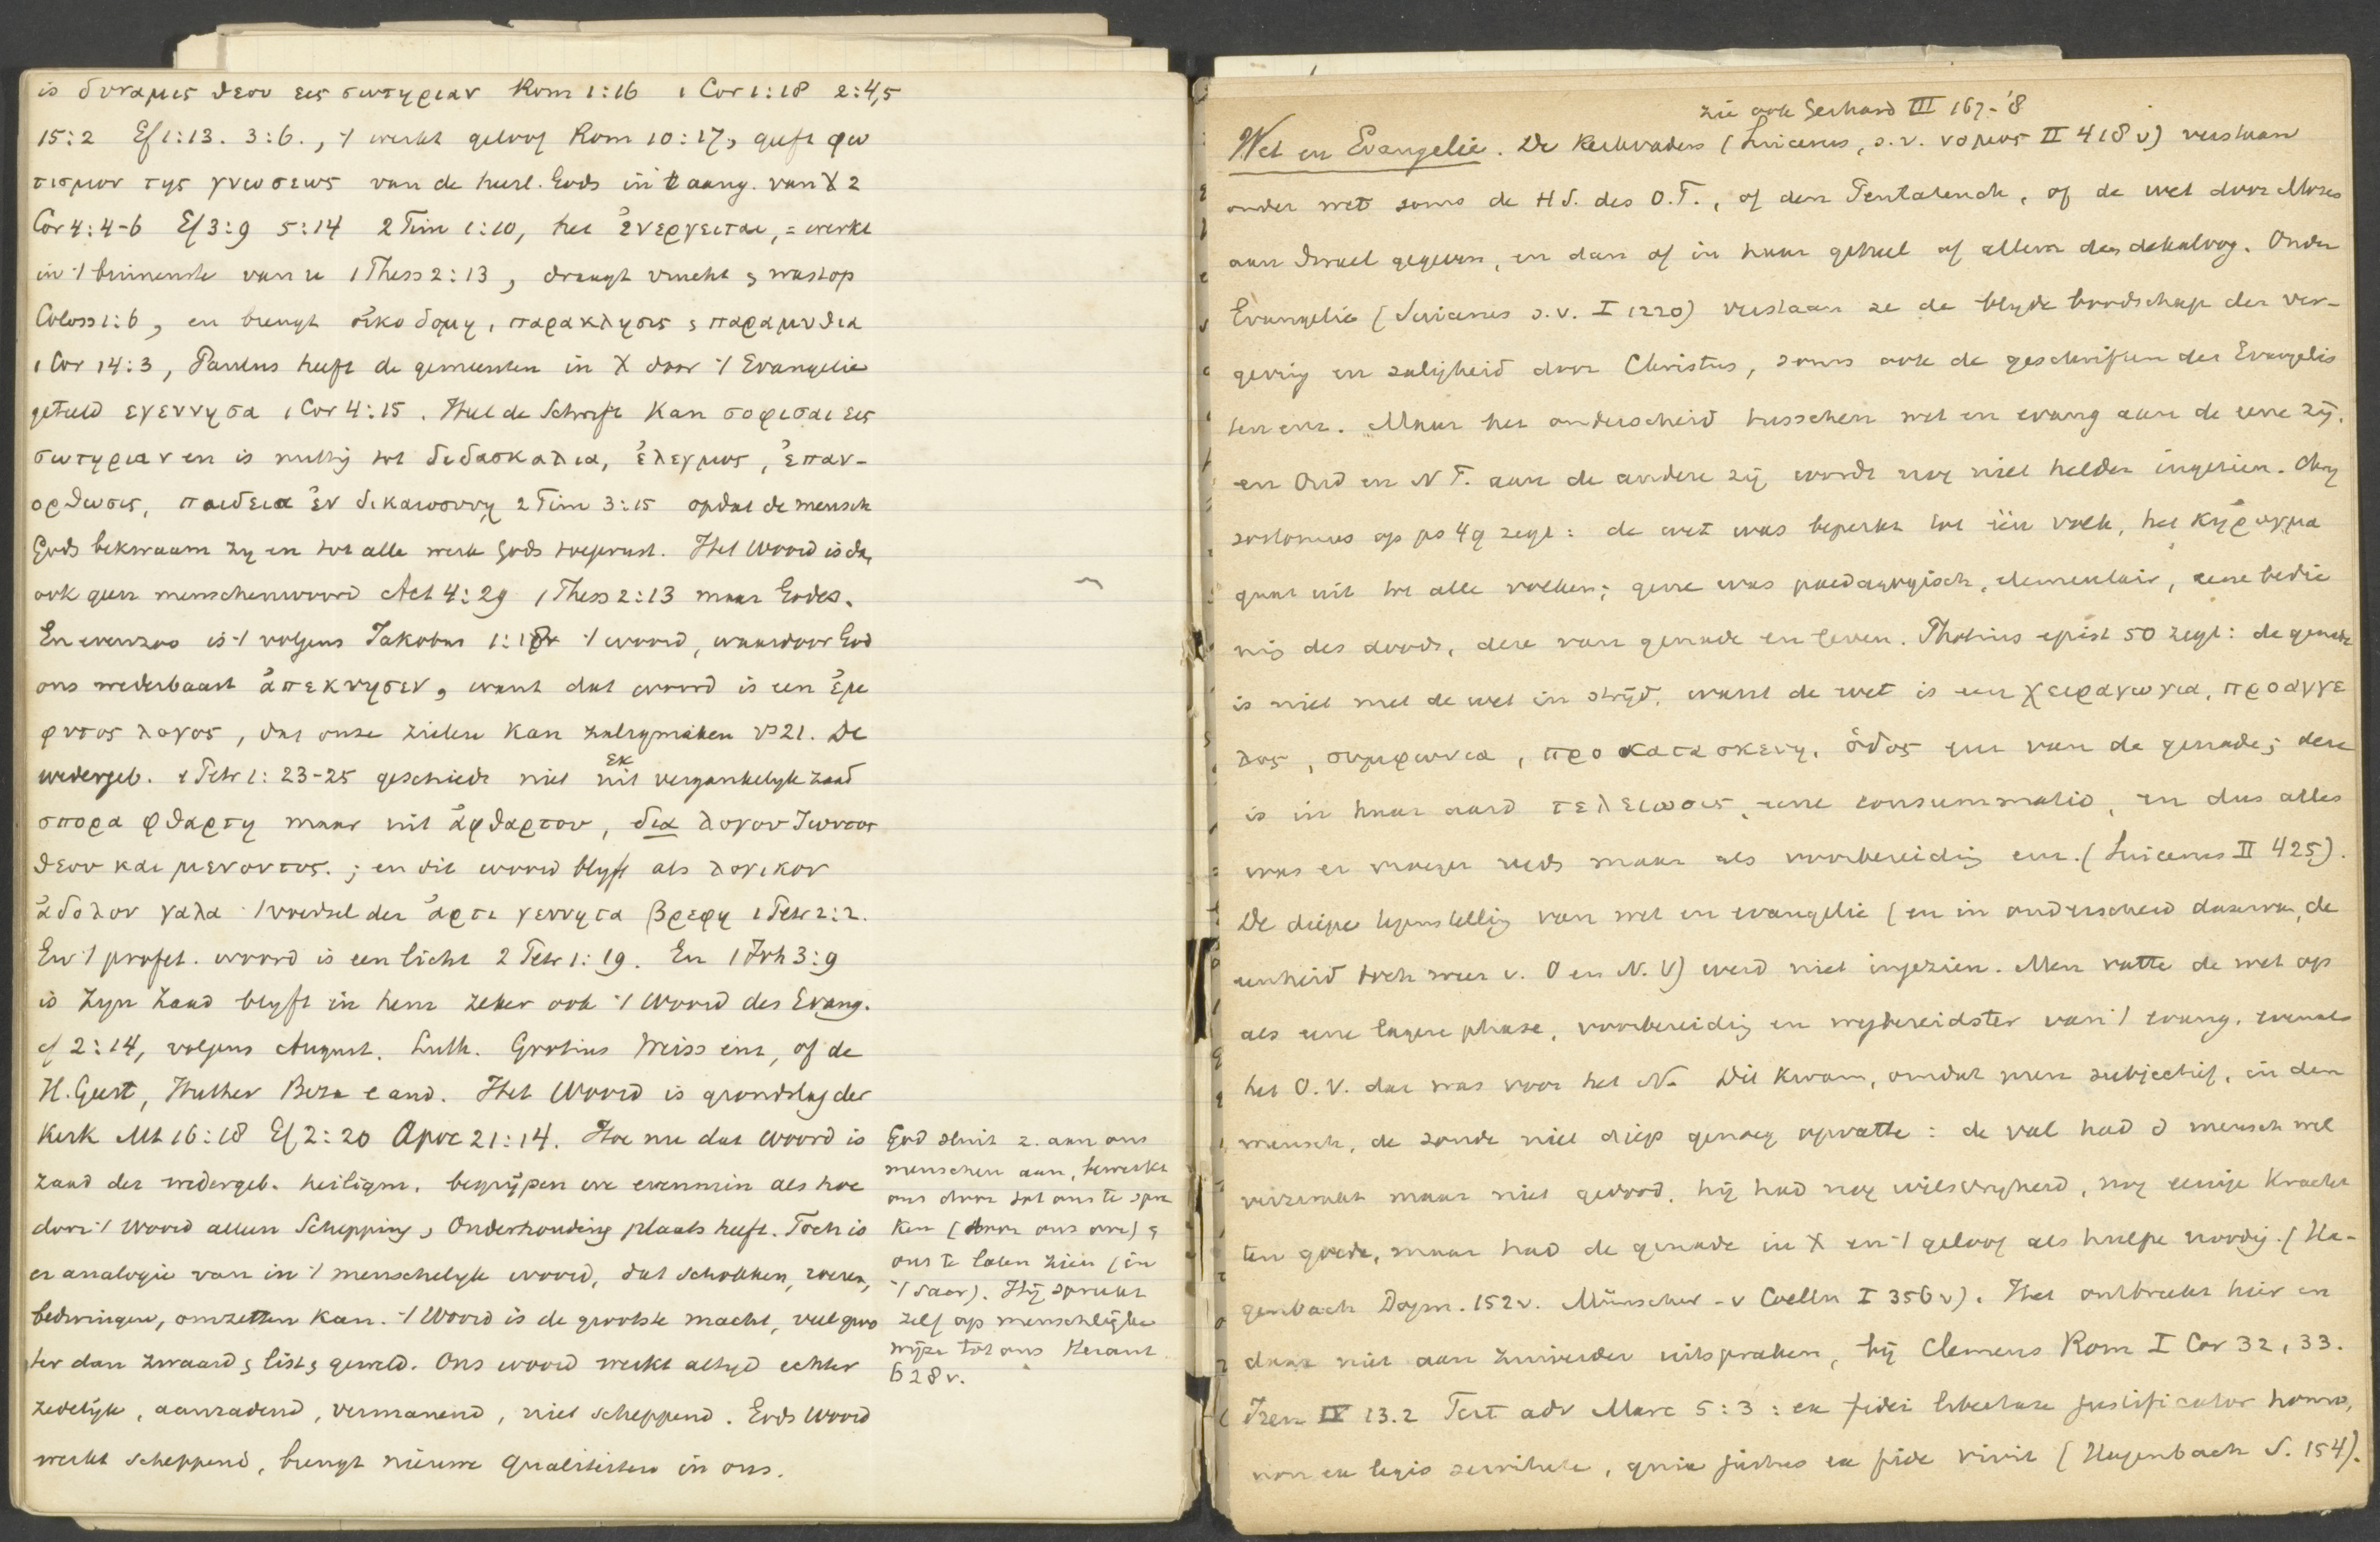 is δυναμις θεου εις σωτηριαν Rom 1:16 1 Cor 1:18 2:4,5
15:2 Ef 1:13. 3:6., 't werkt geloof Rom 10:17, geeft φω
τισμον της γνωσεως van de heerl. Gods in 't aang. van X 2
Cor 4:4-6 Ef 3:9 5:14 2 Tim 1:10, het ἐνεργειται, = werkt
in 't binnenste van u 1 Thess 2:13, draagt vrucht & wast op
Coloss 1:6, en brengt οἰκοδομη, παρακλησις & παραμυθια
1 Cor 14:3, Paulus heeft de gemeenten in X door 't Evangelie
geteeld εγεννησα 1 Cor 4:15. Heel de Schrift kan σοφισαι εις
σωτηριαν en is nuttig tot διδασκαλια, ἐλεγμος, ἐπαν-
ορθωσις, παιδεια ἐν δικαιοσυνη 2 Tim 3:15 opdat de mensch
Gods bekwaam zy en tot alle werk Gods toegerust. Het Woord is dan
ook geen menschenwoord Act 4:29 1 Thess 2:13 maar Godes.
En evenzoo is 't volgens Jakobus 1:18 't woord, waardoor God
ons wederbaart ἀπεκυησεν, want dat woord is een ἐμ
φυτος λογος, dat onze zielen kan zaligmaken vs 21. De
wedergeb. 1 Petr 1:23-25 geschiedt niet uit εκ vergankelyk zaad
σπορα φθαρτη maar uit ἀφθαρτου, δια λογου ζωντος
θεου και μενοντος. ; en dit woord blyft als λογικον
ἀδολον γαλα 't voedsel der ἀρτι γεννητα βρεφη 1 Petr 2:2.
En 't profet. woord is een licht 2 Petr 1:19. En 1 Joh 3:9
is zyn zaad blyft in hem zeker ook 't Woord des Evang.
cf 2:14, volgens August. Luth. Grotius Weiss enz, of de
H. Geest, Huther Beza e and. Het Woord is grondslag der
Kerk Mt 16:18 Ef 2:20 Apoc 21:14. Hoe nu dat Woord is
zaad der wedergeb. heiligm. begrijpen we evenmin als hoe
door 't Woord alleen Schepping, Onderhouding plaats heeft. Toch is
er analogie van in 't menschelyk woord, dat schokken, roeren,
bedwingen, omzetten kan. 't Woord is de grootste macht, veel groo
ter dan zwaard & list & geweld. Ons woord werkt altyd echter
zedelyk, aanradend, vermanend, niet scheppend. Gods Woord
werkt scheppend, brengt nieuwe qualiteiten in ons.
God sluit z. aan ons
menschen aan, bewerkt
ons door tot ons te spre
ken (door ons oor) &
ons te laten zien (in
't Sacr). Hij spreekt
zelf op menschlijke
wijze tot ons Heraut
628v.
zie ook Gerhard III 167-'8
Wet en Evangelie. De Kerkvaders (Suicerus, s.v. νομος II 418 v) verstaan
onder wet soms de H S. des O.T., of den Pentateuch, of de wet door Mozes
aan Israel gegeven, en dan of in haar geheel of alleen den dekaloog. Onder
Evangelie (Suicerus s.v. I 1220) verstaan ze de blyde boodschap der ver-
geving en zaligheid door Christus, soms ook de geschriften der Evangelis
ten enz. Maar het onderscheid tusschen wet en evang aan de eene zij.
en Oud en N T. aan de andere zij wordt nog niet helder ingezien. Chry
sostomus op ps 49 zegt: de wet was beperkt tot één volk, het κηρυγμα
gaat uit tot alle volken; gene was paedagogisch, elementair, eene bedie
nis des doods, deze van genade en leven. Photius epist 50 zegt: de genade
is niet met de wet in strijd, want de wet is een χειραγωγια, προαγγε
λος, συμφωνια, προκατασκευη, ὁδος enz van de genade; deze
is in haar aard τελειωσις, eene consummatio, en dus alles
was er vroeger reeds maar als voorbereiding enz. (Suicerus II 425).
De diepe tegenstelling van wet en evangelie (en in onderscheid daarvan, de
eenheid toch weer v. O en N. V) werd niet ingezien. Men vatte de wet op
als eene lagere phase, voorbereiding en wegbereidster van 't evang. evenals
het O.V. dat was voor het N. Dit kwam, omdat men subjectief, in den
mensch, de zonde niet diep genoeg opvatte: de val had d mensch wel
verzwakt maar niet gedood, hij had nog wilsvryheid, nog eenige kracht
ten goede, maar had de genade in X en 't geloof als hulpe noodig. (Ha-
genbach Dogm. 152v. Münscher-v Coelln I 356 v). Het ontbreekt hier en
daar niet aan zuiverder uitspraken, bij Clemens Rom I Cor 32, 33.
Iren IV 13.2 Tert adv Marc 5:3: ex fidei libertate justificatur homo,
non ex legis servitute, quia justus ex fide vivit (Hagenbach S. 154).